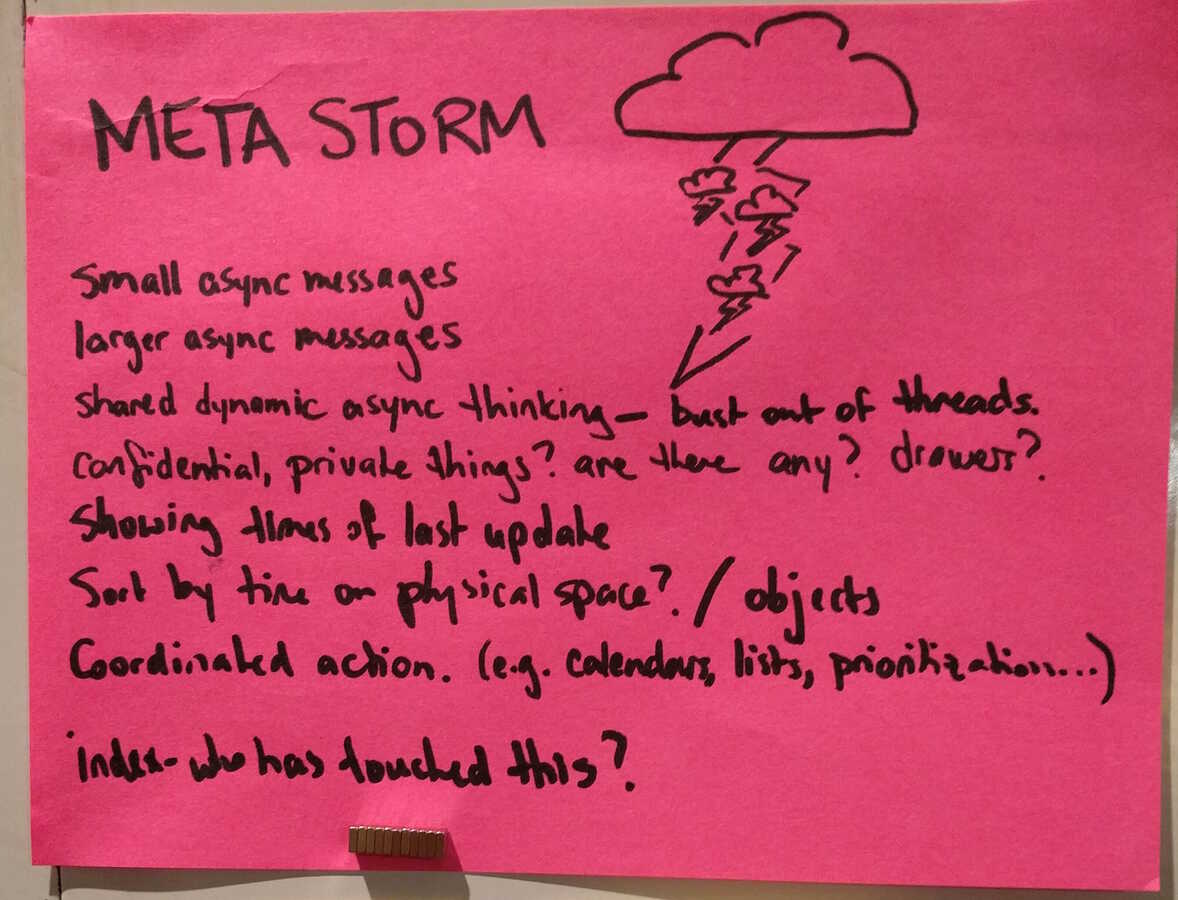 META STORM
small async messages
larger async messages
shared dynamic async thinking – bust out of threads.
confidential, private things? are there any? drawers?
Showing times of last update
Sort by time on physical space? / objects
Coordinated action. (e.g. calendars, lists, prioritization...)
index - who has touched this?